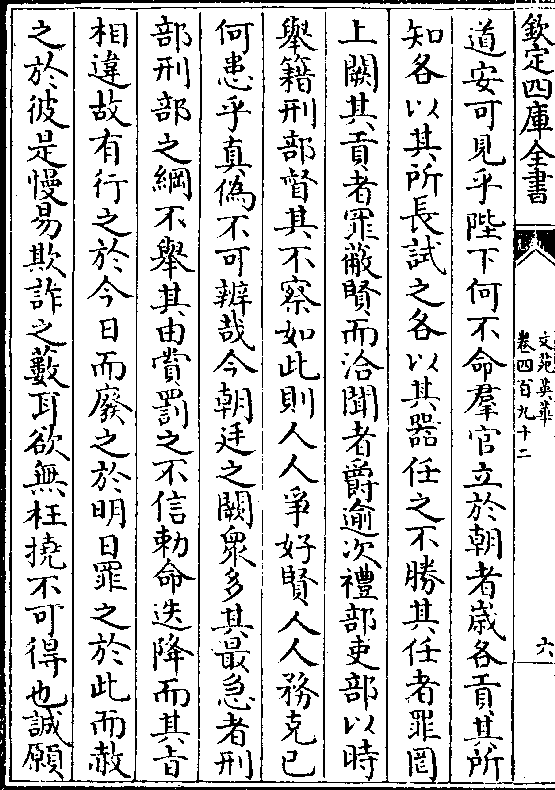 欽定四庫全書
文苑英華
卷四百九十二
六
道安可見乎陛下何不命羣官立於朝者歳各貢其所
知各以其所長試之各以其器任之不勝其任者罪罔
上闕其貢者罪蔽賢而洽聞者爵逾次禮部吏部以時
舉籍刑部督其不察如此則人人爭好賢人人務克己
何患乎真偽不可辦哉今朝廷之闕衆多其最急者刑
部刑部之綱不舉其由賞罰之不信勅命迭降而其旨
相違故有行之於今日而廢之於明日罪之於此而赦
之於彼是慢易欺詐之藪耳欲無枉撓不可得也誠願